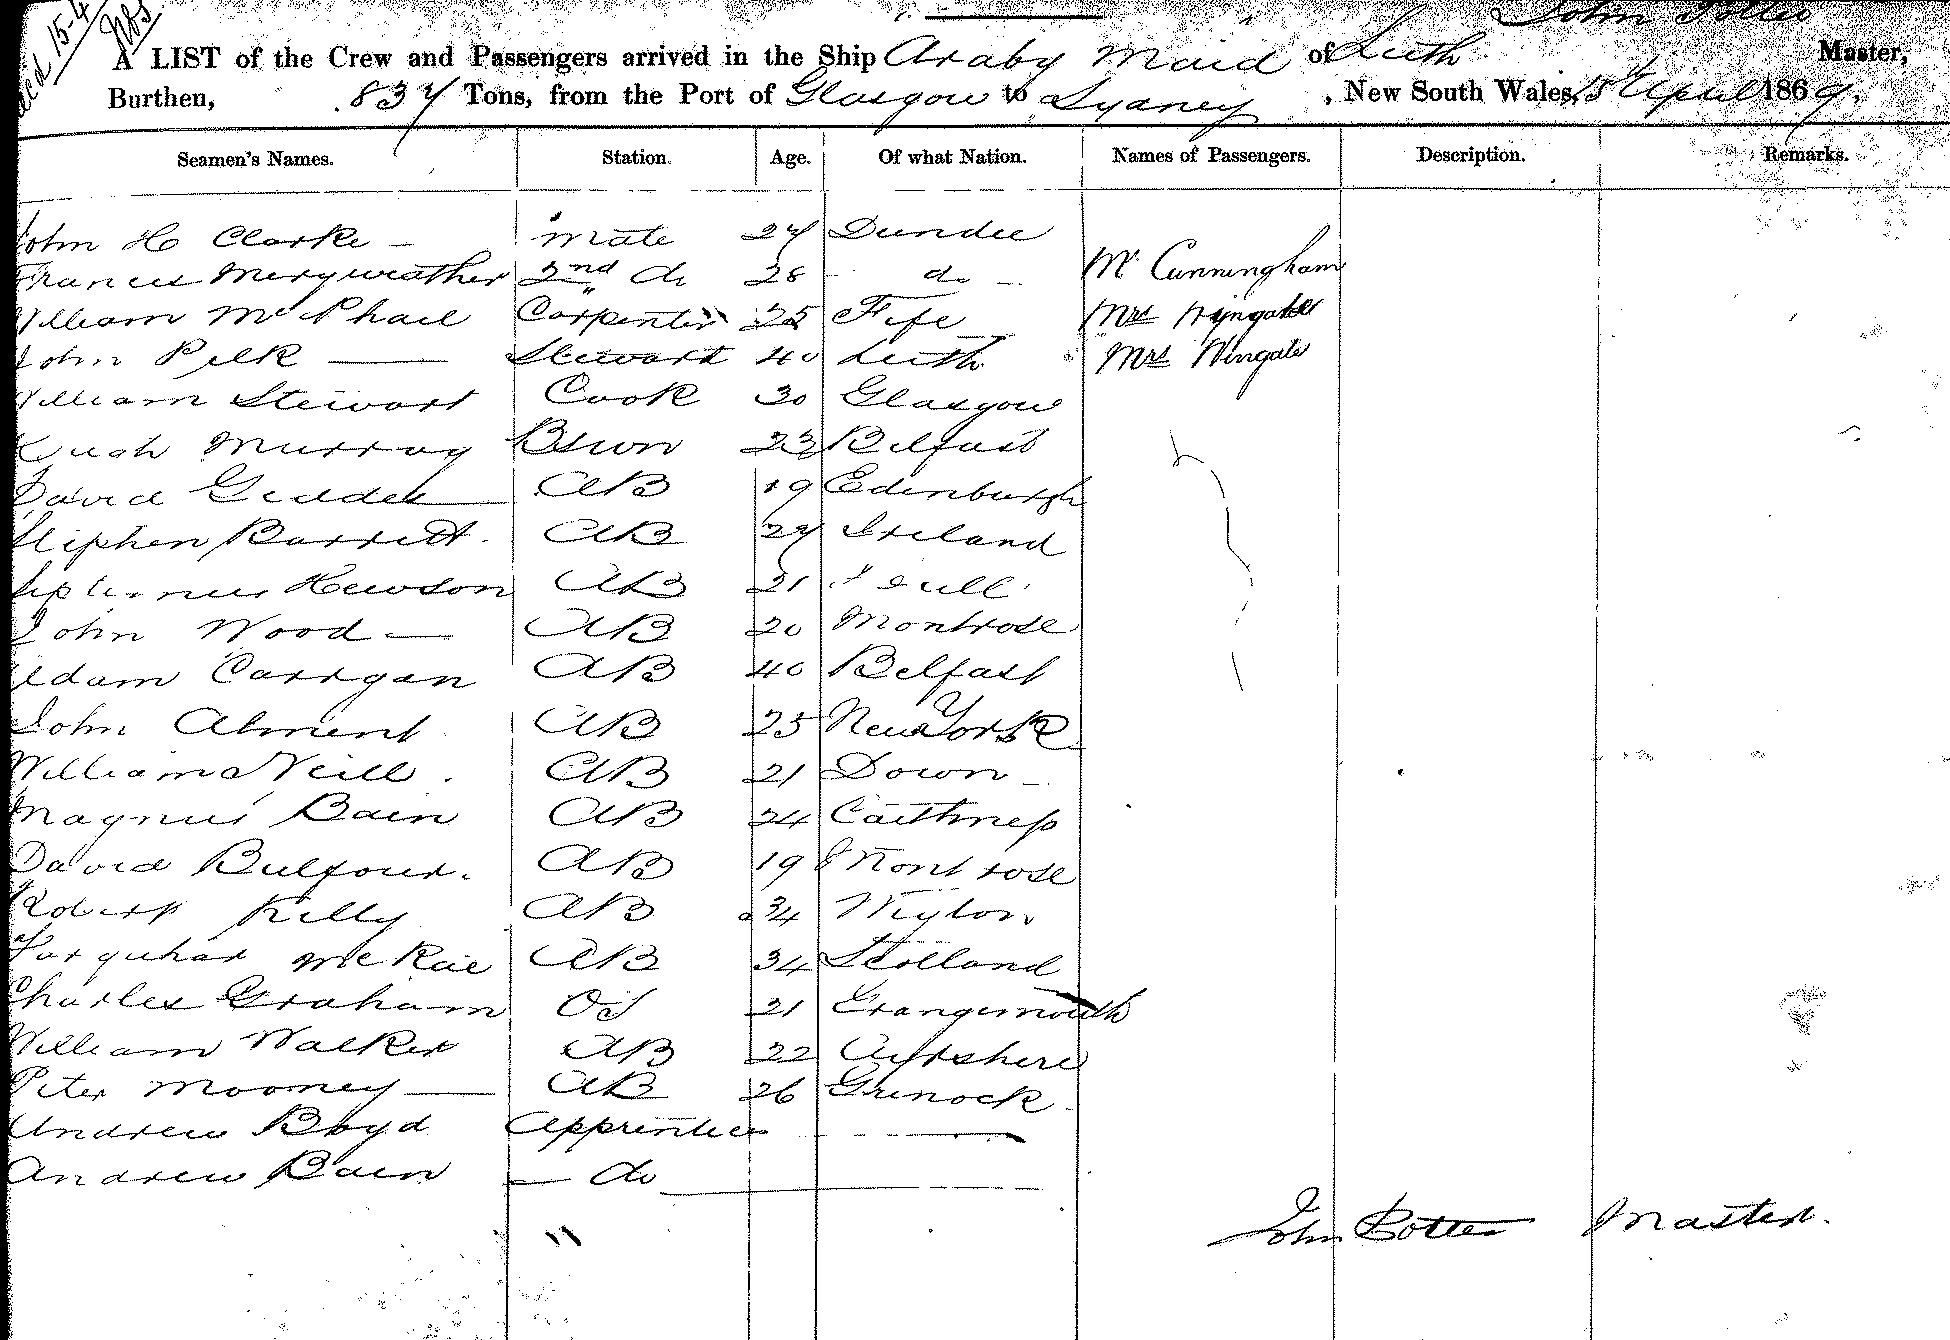 John Potter
A LIST of the Crew and Passengers arrived in the Ship Araby Maid of Leith Master,
Burthen, 837 Tons, from the Port of Glasgow to Sydney, New South Wales, 15 April 1869.
Seamen's Names. Station. Age. Of what Nation. Names of Passengers. Description. Remarks.
John H Clarke — Mate 27 Dundee
Francis Meryweather 2nd do 28 do Mr Cunningham
William McPhail Carpenter 25 Fife Mrs Wingate
John Pelk — Stewart 40 Leith Mrs Wingate
William Stewart Cook 30 Glasgow
Hugh Murray Bswn 23 Belfast
David Geddes AB 19 Edinburgh
Stephen Barrett. AB 27 Ireland
Septimus Hewson AB 21 Hull
John Wood — AB 20 Montrose
Adam Carrigan AB 40 Belfast
John Alment AB 25 New York
William Neill. AB 21 Down
Magnus Bain AB 24 Caithness
David Bulfour. AB 19 Montrose
Robert Kelly AB 34 Wigton
Farquhar McRae AB 34 Scotland
Charles Graham OS 21 Grangemouth
William Walker AB 22 Ayrshire
Peter Mooney — AB 26 Grenock
Andrew Boyd Apprentice —
Andrew Bain — do —
John Potter Master.